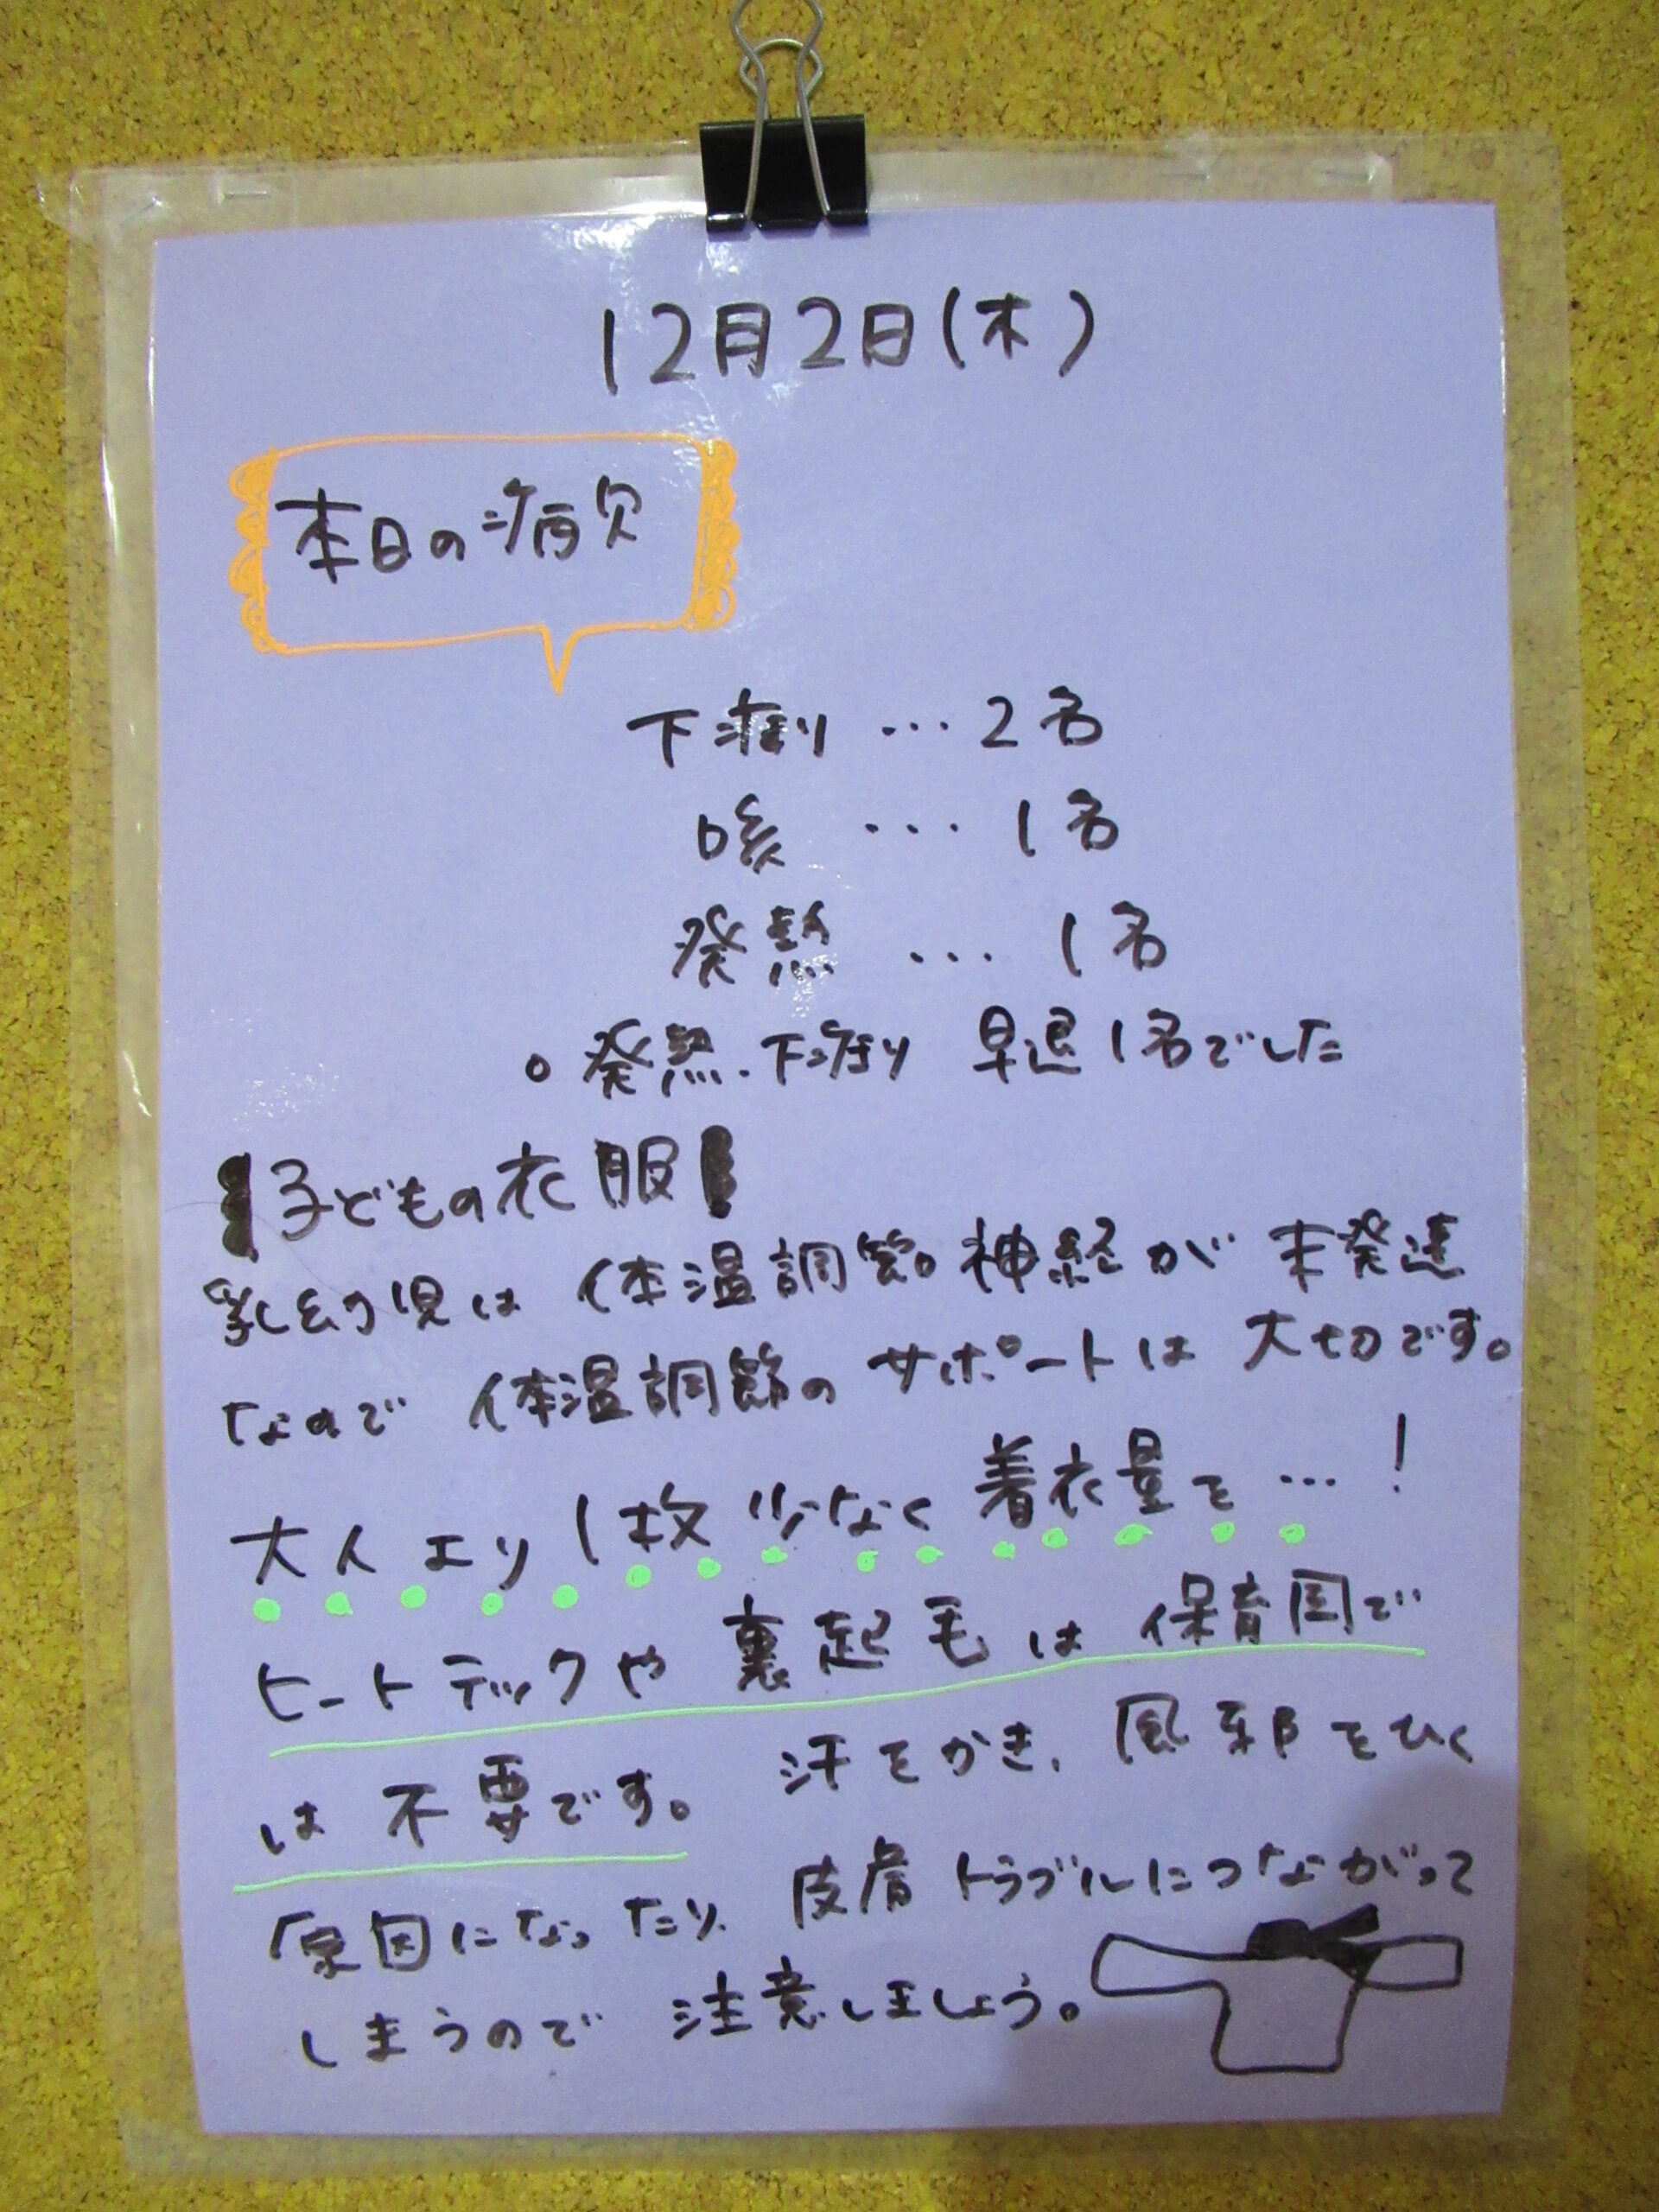 12月2日(木)
本日の病欠
下痢り … 2名
咳 … 1名
発熱 … 1名
○発熱.下痢り 早退1名でした
【子どもの衣服】
乳幼児は 体温調節神経が 未発達
なので 体温調節の サポートは 大切です。
大人より 1枚 少なく 着衣量を … !
ヒートテックや 裏起毛 は 保育園で
は 不要です。 汗をかき、風邪をひく
原因になったり、皮膚トラブルにつながって
しまうので 注意しましょう。